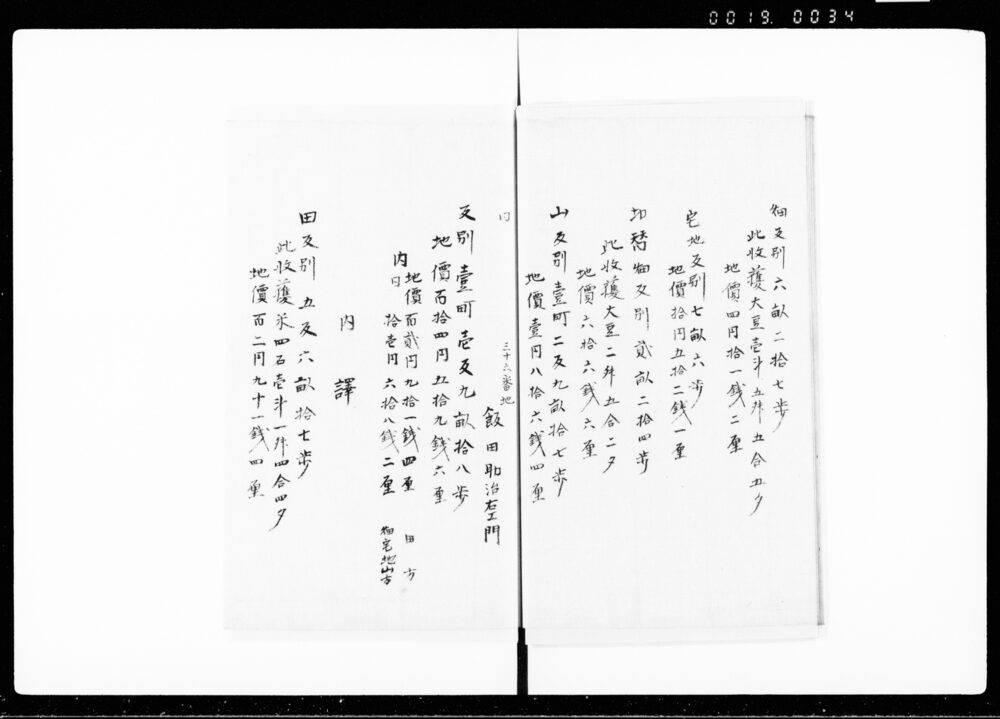 0019. 0034
畑反別六畝二拾七歩
此收穫大豆壱斗五升五合五夕
地價四円拾一銭二厘
宅地反別七畝六歩
地價拾円五拾二銭一厘
切替畑反別貳畝二拾四歩
此收穫大豆二升五合二夕
地價六拾六銭六厘
山反別壹町二反九畝拾七歩
地價壹円八拾六銭四厘
三十六番地
飯田助治右エ門
反別壹町壱反九畝拾八歩
地價百拾四円五拾九銭六厘
内 地價百貳円九拾一銭四厘 田方
内 拾壱円六拾八銭二厘 畑宅地山方
内譯
田反別五反六畝拾七歩
此收穫米四石壱斗一升四合四夕
地價百二円九十一銭四厘